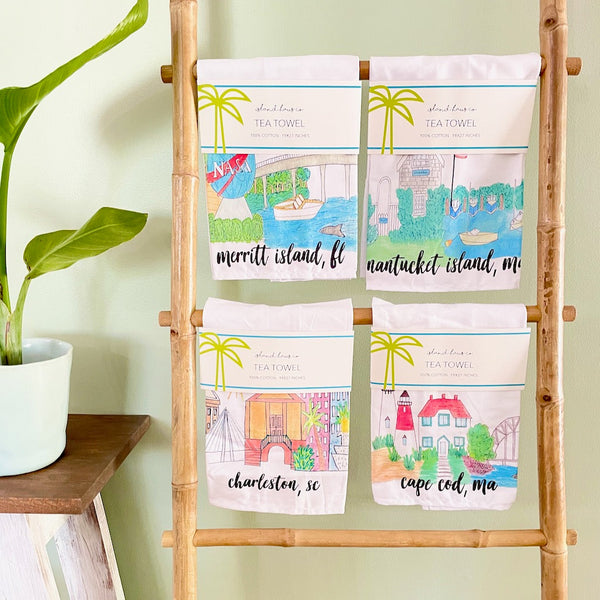 island haus co
TEA TOWEL
100% COTTON · 19X27 INCHES
NASA
merritt island, fl
island haus co
TEA TOWEL
100% COTTON · 19X27 INCHES
nantucket island, ma
island haus co
TEA TOWEL
100% COTTON · 19X27 INCHES
charleston, sc
island haus co
TEA TOWEL
100% COTTON · 19X27 INCHES
cape cod, ma